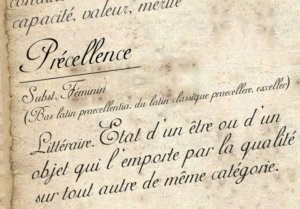 capacité, valeur, mérite
Précellence
Subst. Féminin
(Bas latin praecellentia, du latin classique praecellere, exceller)
Littéraire. Etat d'un être ou d'un
objet qui l'emporte par la qualité
sur tout autre de même catégorie.